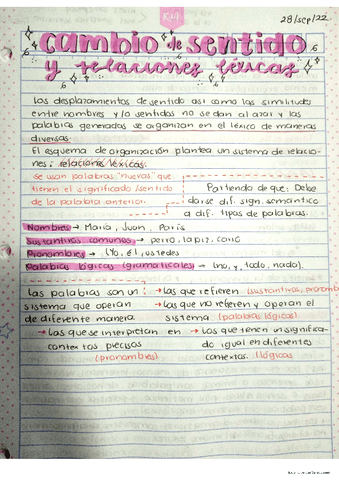 28/sep/22
cambio de sentido
y relaciones léxicas
Los desplazamientos de sentido así como las similitudes
entre nombres y/o sentidos no se dan al azar y las
palabras generadas se organizan en el léxico de maneras
diversas.
El esquema de organización plantea un sistema de relacio-
nes: relaciones léxicas.
se usan palabras "nuevas" que
tienen el significado/sentido
de la palabra anterior.
Partiendo de que: Debe
darse dif. sign. semántico
a dif. tipos de palabras.
Nombres → María, Juan, París
Sustantivos comunes → perro, lápiz,
Pronombres → (Yo, él, ustedes
Palabras lógicas (gramaticales) → (no, y, todo, nada).
Las palabras son un
sistema que operan
de diferente manera
→ las que refieren (sustantivos, pronom
→ las que no refieren y operan el
sistema (palabras lógicas)
→ las que se interpretan en
contextos precisos
(pronombres)
→ las que tienen un significa-
do igual en diferentes
contextos. (lógicas